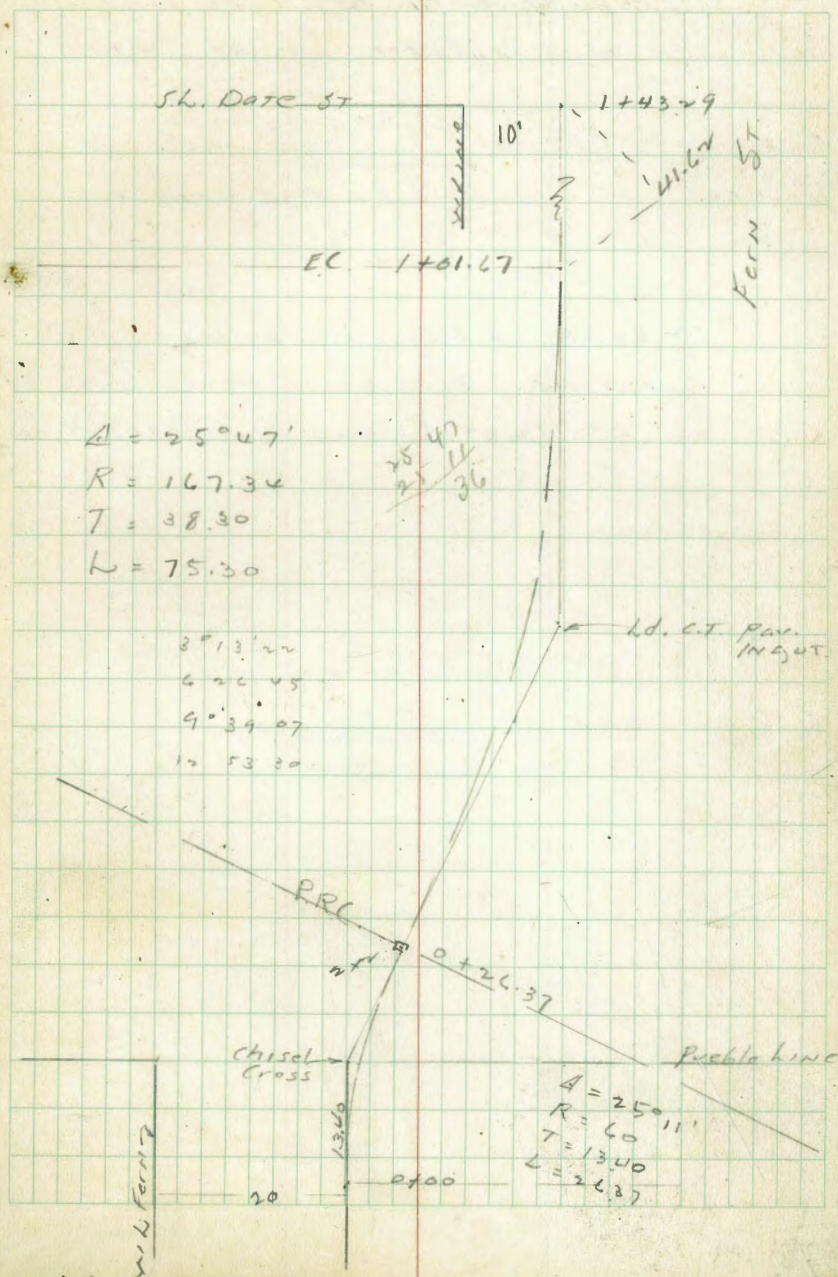 S.L. Date ST
1+43.29
10'
W LINE
41.62
Fern ST.
EC 1+01.67
Δ = 25°47'
R = 167.34
T = 38.30
L = 75.30
25 47
11
36
Ld. C.T. Pav.
IN GUT.
3°13'22
6 26 45
9°39 07
12 53 30
P.R.C.
2x2
0+26.37
Chisel
Cross
Pueblo LINE
Δ = 25°11'
R = 60
T = 13.40
L = 26.37
13.40
0+00
20
W L Fern